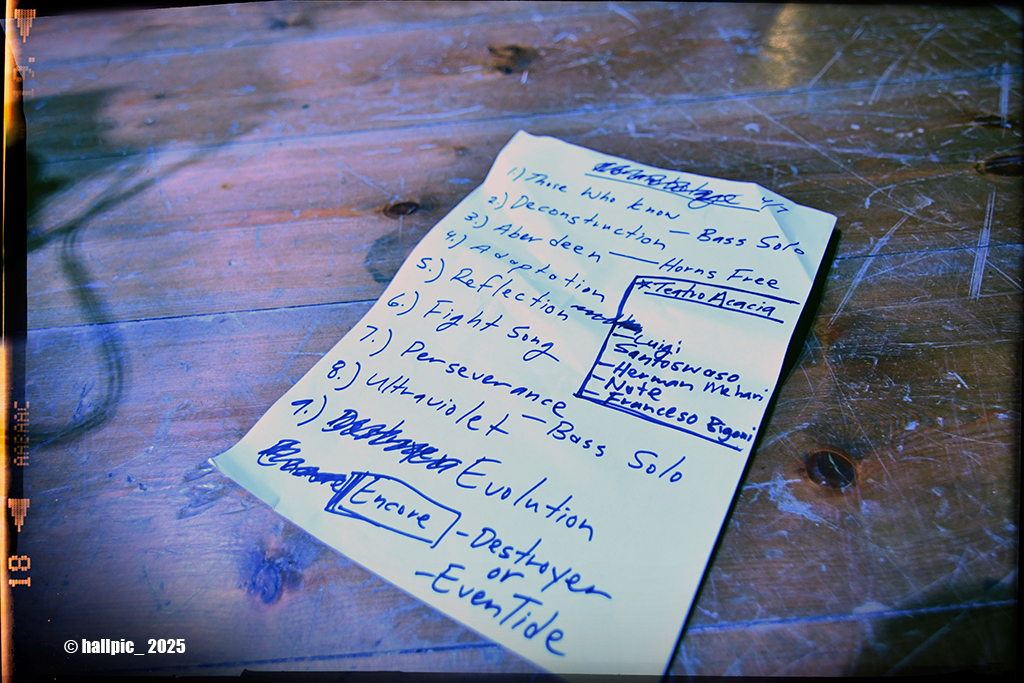 4/7
1) Those Who Know — Bass Solo
2) Deconstruction
3.) Aberdeen — Horns Free
4.) Adaptation
5.) Reflection
6.) Fight Song
7.) Perseverance — Bass Solo
8.) Ultraviolet
9.) Evolution
Encore - Destroyer
or
- EvenTide
* Teatro Acacia
- Luigi
Santoswaso
- Herman Mehari
- Note
- Franceso Bigoni
18
© hallpic_ 2025